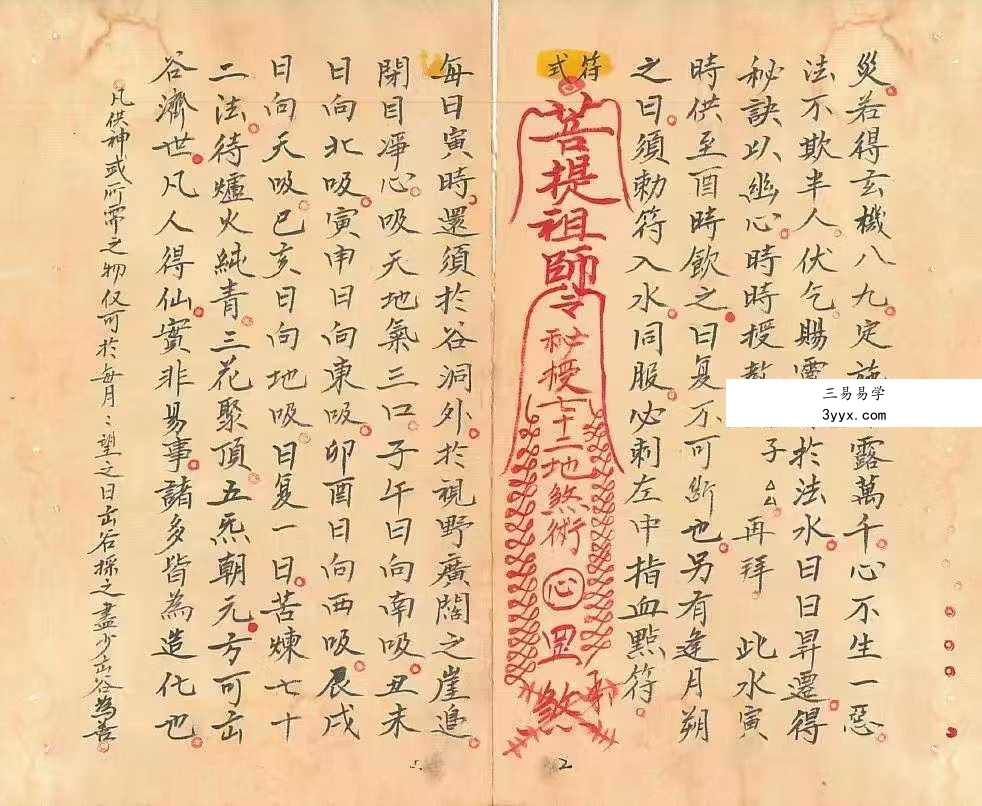 災若得玄機八九定施露萬千心不生一惡
法不欺半人伏乞賜靈於法水日日昇遷得
秘訣以繼心時時授教子厶厶再拜 此水寅
時供至酉時飲之日复不可断也另有逢月朔
之日須勅符入水同服必刺左中指血點符
符式
菩提祖師令秘授七十二地煞術心罡煞
每日寅時還須於谷洞外於視野廣闊之崖邊
閉目淨心吸天地氣三口子午日向南吸丑未
日向北吸寅申日向東吸卯酉日向西吸辰戌
日向天吸巳亥日向地吸日复一日苦煉七十
二法待爐火純青三花聚頂五炁朝元方可出
谷濟世凡人得仙實非易事諸多皆為造化也
凡供神或所需之物仅可於每月望之日出谷採之盡少出谷為善
2
三易易学
3yyx.com